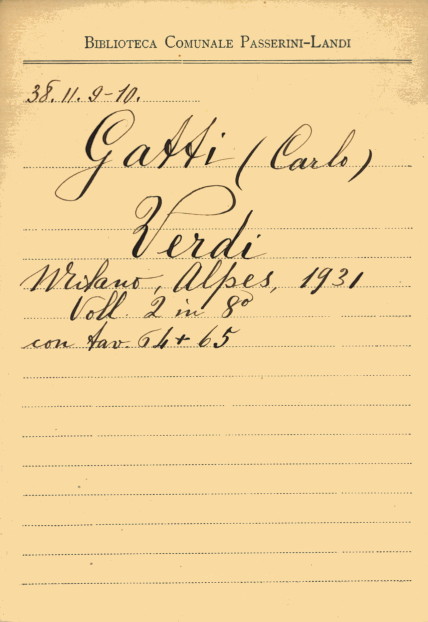 BIBLIOTECA COMUNALE PASSERINI-LANDI
38. 11. 9-10.
Gatti (Carlo)
Verdi
Milano, Alpes, 1931
Voll. 2 in 8º
con tav. 64 + 65